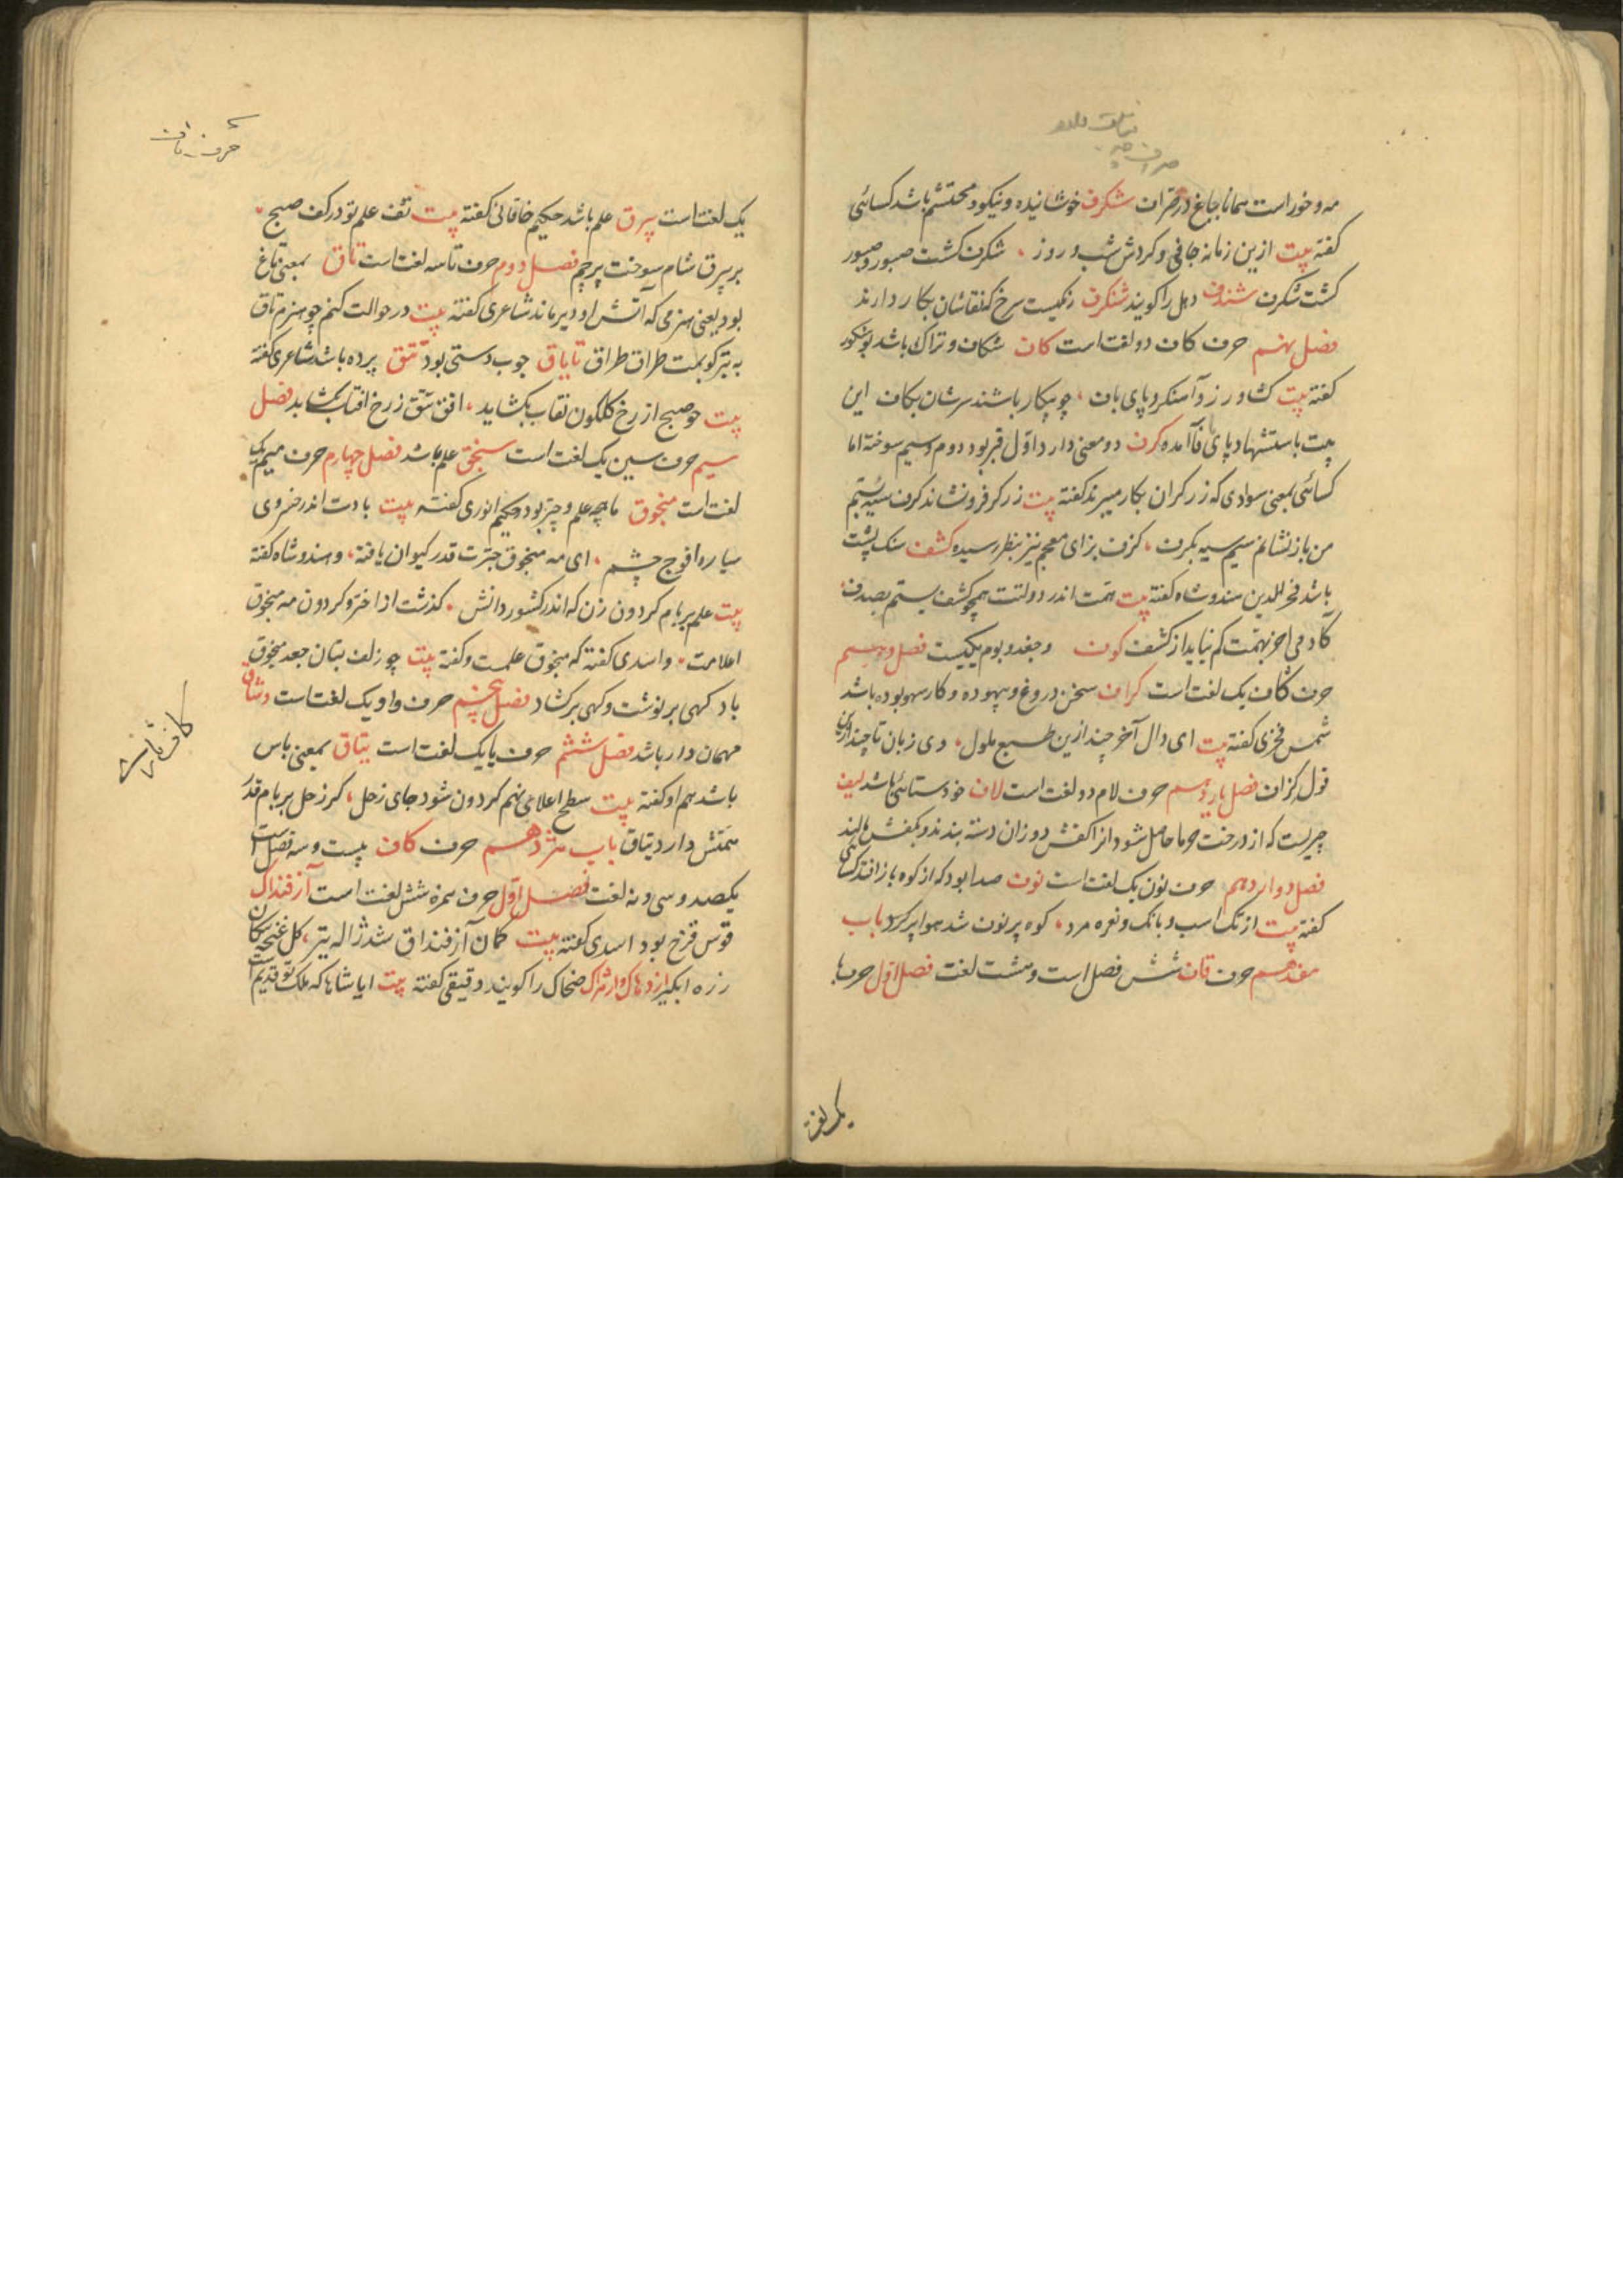 مه و خور است همانا بجاغ در قران شکرف خوشانیده و نیکو و محتشم باشد کسائی
کفته بیت ازین زمانه جافی و کردش شب و روز شکرف کشت صبور و صبور
کشت شکرف شندف دهل را کویند شنکرف رنکیست سرخ که نقاشان بکار دارند
فصل نهم حرف کاف دو لغت است کاف شکاف و تراک باشد بوشکور
کفته بیت کشاورز و آهنکر و پای باف چو بیکار باشند سرشان بکاف این
بیت باستشهاد پای باف آمده کرف دو معنی دارد اول قیر بود دوم سیم سوخته اما
کسائی بمعنی سوادی که زرکران بکار میبرند کفته بیت زرکر فرونشاند کرف سیه بسیم
من باز نشانم سیم سیه بکرف کزف بزای معجم نیز بنظر رسیده کشف سنک پشت
باشد فخرالدین هندوشاه کفته بیت همت اندر دولتت همچو کشف بستم بصدف
کادمی اخر بهمت کم نیاید از کشف کوف و جغد و بوم یکیست فصل دهم
حرف کاف یک لغت است کزاف سخن دروغ و بیهوده و کار سهو بوده باشد
شمس فخری کفته بیت ای دال آخر چند ازین طبع ملول وی زبان تا چند ازین
قول کزاف فصل یازدهم حرف لام دو لغت است لاف خودستائی باشد لیف
چیزیست که از درخت خرما حاصل شود انرا کفش دوزان دسته بندند و بکفش مالند
فصل دوازدهم حرف نون یک لغت است نوف صدا بود که از کوه باز افتد کسائی
کفته بیت از تک اسب و بانک و نعره مرد کوه پر نوف شد هوا پر کرد باب
هفدهم حرف قاف شش فصل است و هشت لغت فصل اول حرف با
یک لغت
حرف تاف
یک لغت است بیرق علم باشد حکیم خاقانی کفته بیت تف علم تو در کف صبح
بر بیرق شام سوخت پرچم فصل دوم حرف تا سه لغت است تاق بمعنی تاغ
بود یعنی هیزمی که آتش او دیر ماند شاعری کفته بیت در حوالت کنم چو هیزم تاق
به تبر کوبمت طراق طراق تایاق چوب دستی بود تتق پرده باشد شاعری کفته
بیت چو صبح از رخ کلکون نقاب بکشاید افق تتق ز رخ افتاب بکشاید فصل
سیم حرف سین یک لغت است سنجق علم باشد فصل چهارم حرف میم یک
لغت است منجوق ماهچه علم و چتر بود حکیم انوری کفته بیت بادت اندر خسروی
سیاره افوج چشم ای مه منجوق چترت قدر کیوان یافته و هندوشاه کفته
بیت علم بر بام کردون زن که اندر کشور دانش کذشت از اختر و کردون مه منجوق
اعلامت و اسدی کفته که منجوق علمست و کفته بیت چو زلف بتان جعد منجوق
باد کهی بر نوشت و کهی بر کشاد فصل پنجم حرف واو یک لغت است وشاق
مهمان دار باشد فصل ششم حرف یا یک لغت است یتاق بمعنی پاس
باشد هم او کفته بیت سطح اعلای نهم کردون شود جای زحل کر زحل بر بام قدر
همتش دارد یتاق باب هژدهم حرف کاف بیست و سه فصل است
یکصد و سی و نه لغت فصل اول حرف همزه شش لغت است آزفنداک
قوس قزح بود اسدی کفته بیت کمان آزفنداق شد ژاله تیر کل غنچه پیکان
زره ابکیر اژدهاک و ارثراک ضحاک را کویند دقیقی کفته بیت ایا شاها که ملک تو قدیم است
کاف فارسی